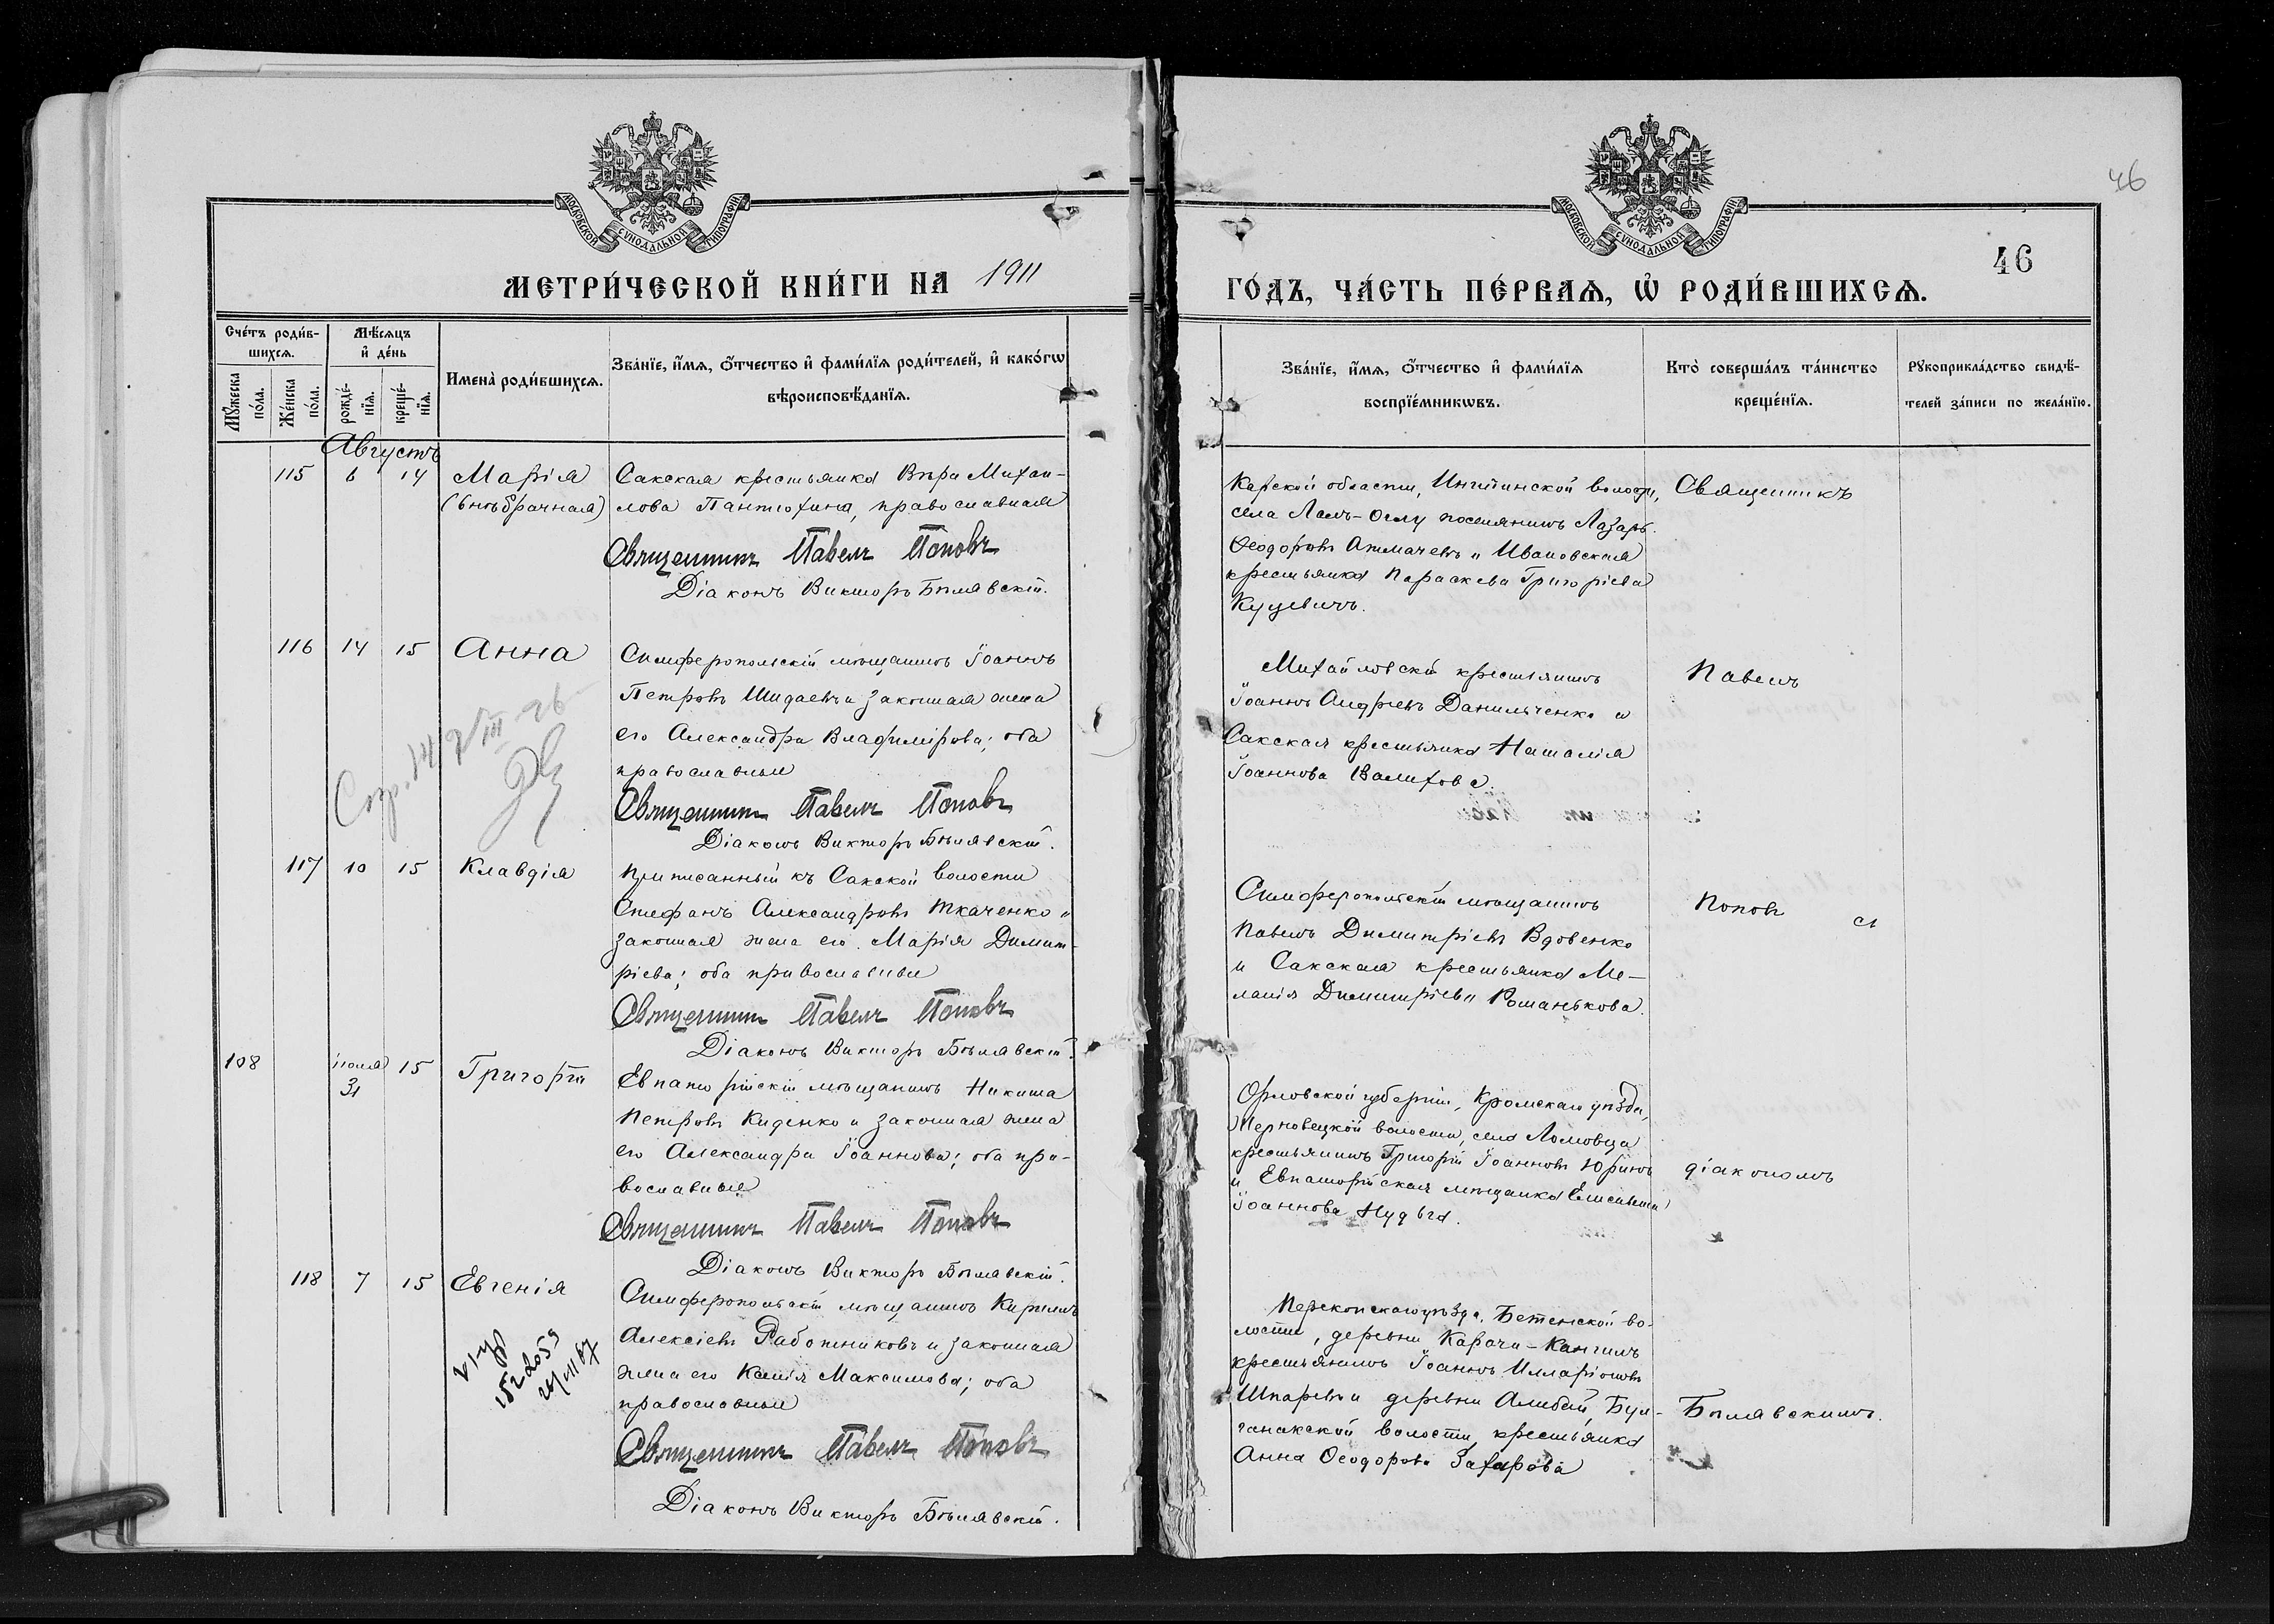 МОСКОВСКОЙ СѴНОДАЛЬНОЙ ТИПОГРАФІИ
МЕТРИ́ЧЕСКОЙ КНИ́ГИ НА 1911
Сче́тъ роди́в-
шихсѧ.
Мѣ́сѧцъ
и҆ де́нь
Мꙋ́жеска
по́ла.
Же́нска
по́ла.
рожде́-
нїѧ.
креще́-
нїѧ.
Имена̀ роди́вшихсѧ.
Зва́нїе, и҆́мѧ, ѻ҆́тчество и҆ фами́лїѧ роди́телей, и҆ како́гѡ
вѣроисповѣ́данїѧ.
Августъ
115 6 14 Марія Сакская крестьянка Вѣра Михаи-
(внѣбрачная) лова Пантюхина, православная
Священникъ Павелъ Поповъ
Діаконъ Викторъ Бѣлявскій.
116 14 15 Анна Симферопольскій мѣщанинъ Іоаннъ
Петровъ Шидаевъ и законная жена
его Александра Владимірова; оба
православные
Священникъ Павелъ Поповъ
Діаконъ Викторъ Бѣлявскій.
117 10 15 Клавдія Приписанный къ Сакской волости
Стефанъ Александровъ Ткаченко и
законная жена его Марія Димит-
ріева; оба православные
Священникъ Павелъ Поповъ
Діаконъ Викторъ Бѣлявскій.
108 іюля 31 15 Григорій Евпаторійскій мѣщанинъ Никита
Петровъ Киденко и законная жена
его Александра Іоаннова; оба пра-
вославные
Священникъ Павелъ Поповъ
Діаконъ Викторъ Бѣлявскій.
118 7 15 Евгенія Симферопольскій мѣщанинъ Кириллъ
Алексіевъ Работниковъ и законная
жена его Ксенія Максимова; оба
православные
Священникъ Павелъ Поповъ
Діаконъ Викторъ Бѣлявскій.
МОСКОВСКОЙ СѴНОДАЛЬНОЙ ТИПОГРАФІИ
46
46
ГО́ДЪ, ЧА́СТЬ ПЕ́РВАѦ, Ѡ҆ РОДИ́ВШИХСѦ.
Зва́нїе, и҆́мѧ, ѻ҆́тчество и҆ фами́лїѧ
воспрїе́мникѡвъ.
Кто̀ соверша́лъ та́инство
креще́нїѧ.
Рꙋкоприкла́дство свидѣ́-
телей за́писи по жела́нїю.
Карской области, волости, Священникъ
села поселянинъ Лазарь
Ѳеодоровъ и Ивановская
крестьянка Параскева Григоріева
Куцевичъ.
Михайловскій крестьянинъ Павелъ
Іоаннъ Андреевъ Данильченко и
Сакская крестьянка Наталія
Іоаннова Валихова.
Симферопольскій мѣщанинъ Поповъ съ
Павелъ Димитріевъ Вдовенко
и Сакская крестьянка Ме-
ланія Димитріева Романькова.
Орловской губерніи, Кромскаго уѣзда,
волости, села Ломовца
крестьянинъ Григорій Іоанновъ Юринъ діакономъ
и Евпаторійская мѣщанка Елисавета
Іоаннова Нудьга.
Перекопскаго уѣзда, волости, деревни Карачи-Кангилъ
крестьянинъ Іоаннъ Илларіоновъ
Шпаревъ и деревни Алибай, Бул- Бѣлявскимъ.
ганакской волости, крестьянка
Анна Ѳеодорова Захарова